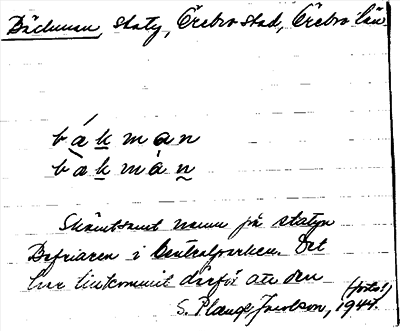 Bäckman, staty, Örebro stad, Örebro län
bákman
bàkmàn
Skämtsamt namn på statyn
Befriaren i Centralparken. Det
har tillkommit därför att den
S. Plauge Jacobson, 1944.